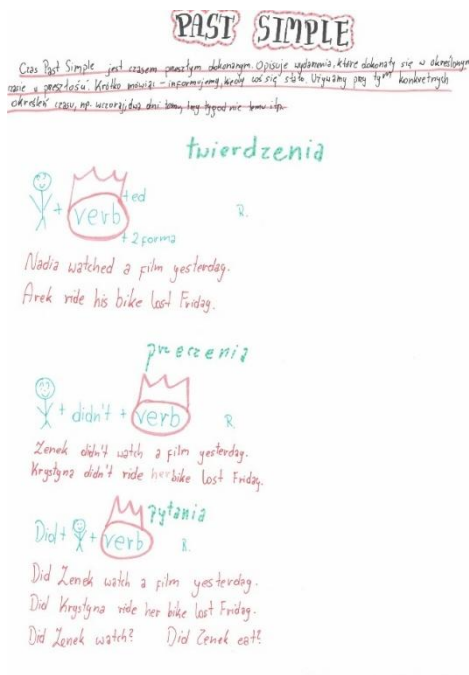 PAST SIMPLE
Czas Past Simple jest czasem przeszłym dokonanym. Opisuje wydarzenia, które dokonały się w określonym
czasie w przeszłości. Krótko mówiąc - informujemy, kiedy coś się stało. Używamy przy tym konkretnych
określeń czasu, np. wczoraj, dwa dni temu, trzy tygodnie temu itp.
twierdzenia
+ verb +ed
+ 2 forma
R.
Nadia watched a film yesterday.
Arek ride his bike lost Friday.
przeczenia
+ didn't + verb R.
Zenek didn't watch a film yesterday.
Krystyna didn't ride her bike lost Friday.
pytania
Did + + verb R.
Did Zenek watch a film yesterday.
Did Krystyna ride her bike lost Friday.
Did Zenek watch? Did Zenek eat?